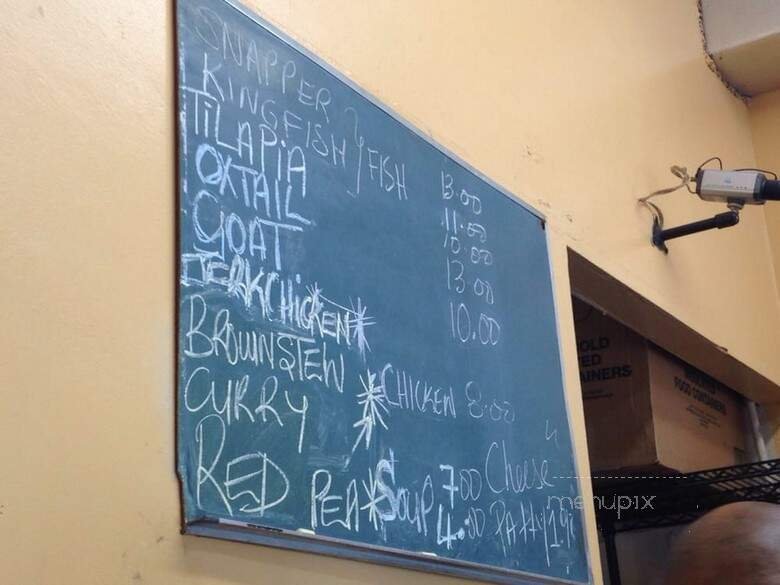 SNAPPER
KINGFISH } FISH 13.00
TILAPIA 11.00
OXTAIL 10.00
GOAT 13.00
JERK CHICKEN 10.00
BROWN STEW
CURRY CHICKEN 8.00
RED PEA SOUP 7.00 Cheese
4.00 Patty
OLD
TED
AINERS
FOOD CONTAINERS
menupix